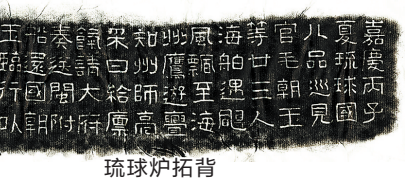 嘉慶丙子
夏琉球國
八品巡見
官毛朝玉
等廿三人
海舶遇颶
風飄至海
州鷹遊
知州師亮
采日給廩
餼請大府
奏送閩附
船還國朝
玉臨行以
琉球炉拓背